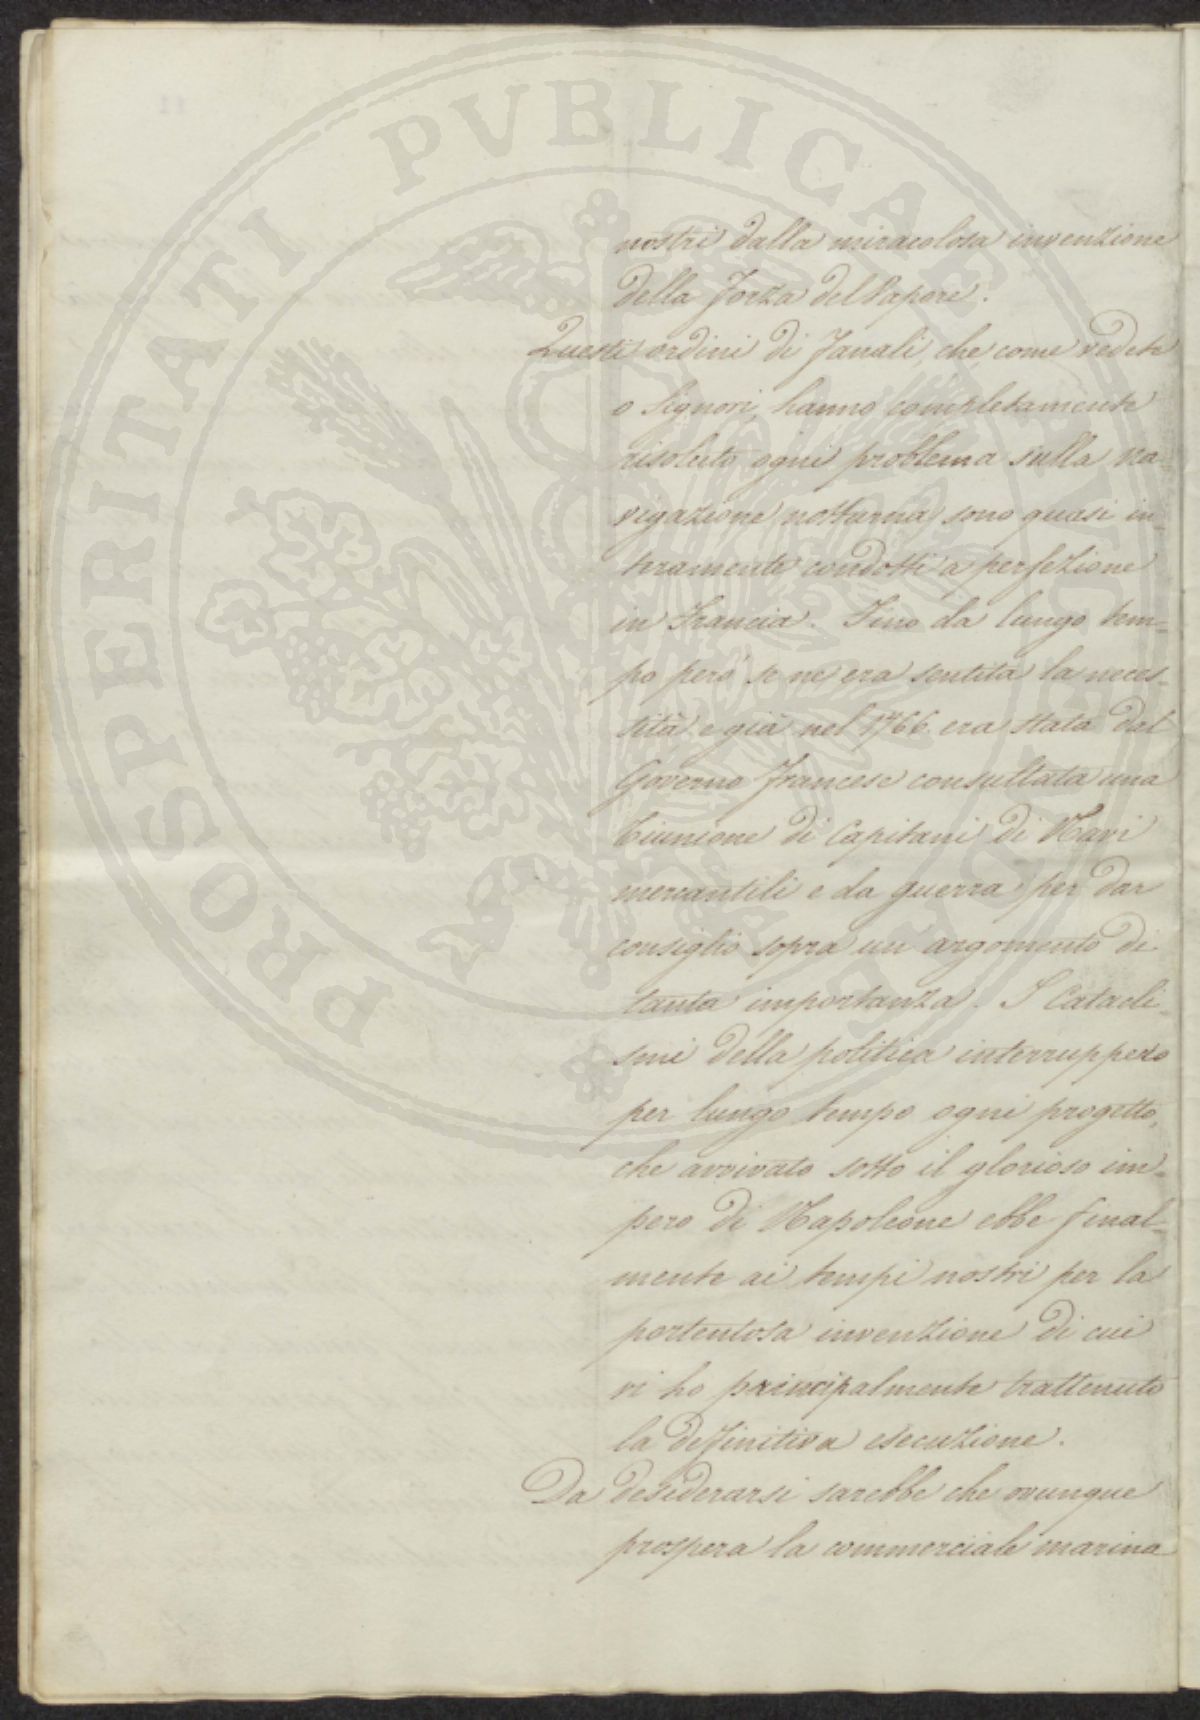 PROSPERITATI PVBLICAE AVGENDAE
nostri dalla miracolosa invenzione
della forza del Vapore.
Questi ordini di Fanali, che come vedete
o Signori, hanno completamente
risoluto ogni problema sulla na-
vigazione notturna, sono quasi in-
teramente condotti a perfezione
in Francia. Fino da lungo tem-
po però se ne era sentita la neces-
sità e già nel 1766 era stata dal
Governo francese consultata una
riunione di Capitani di Navi
mercantili e da guerra per dar
consiglio sopra un argomento di
tanta importanza. I Catacli-
smi della politica interruppero
per lungo tempo ogni progetto,
che avvivato sotto il glorioso im-
pero di Napoleone ebbe final-
mente ai tempi nostri per la
portentosa invenzione di cui
vi ho principalmente trattenuto
la definitiva esecuzione.
Da desiderarsi sarebbe che ovunque
prospera la commerciale marina